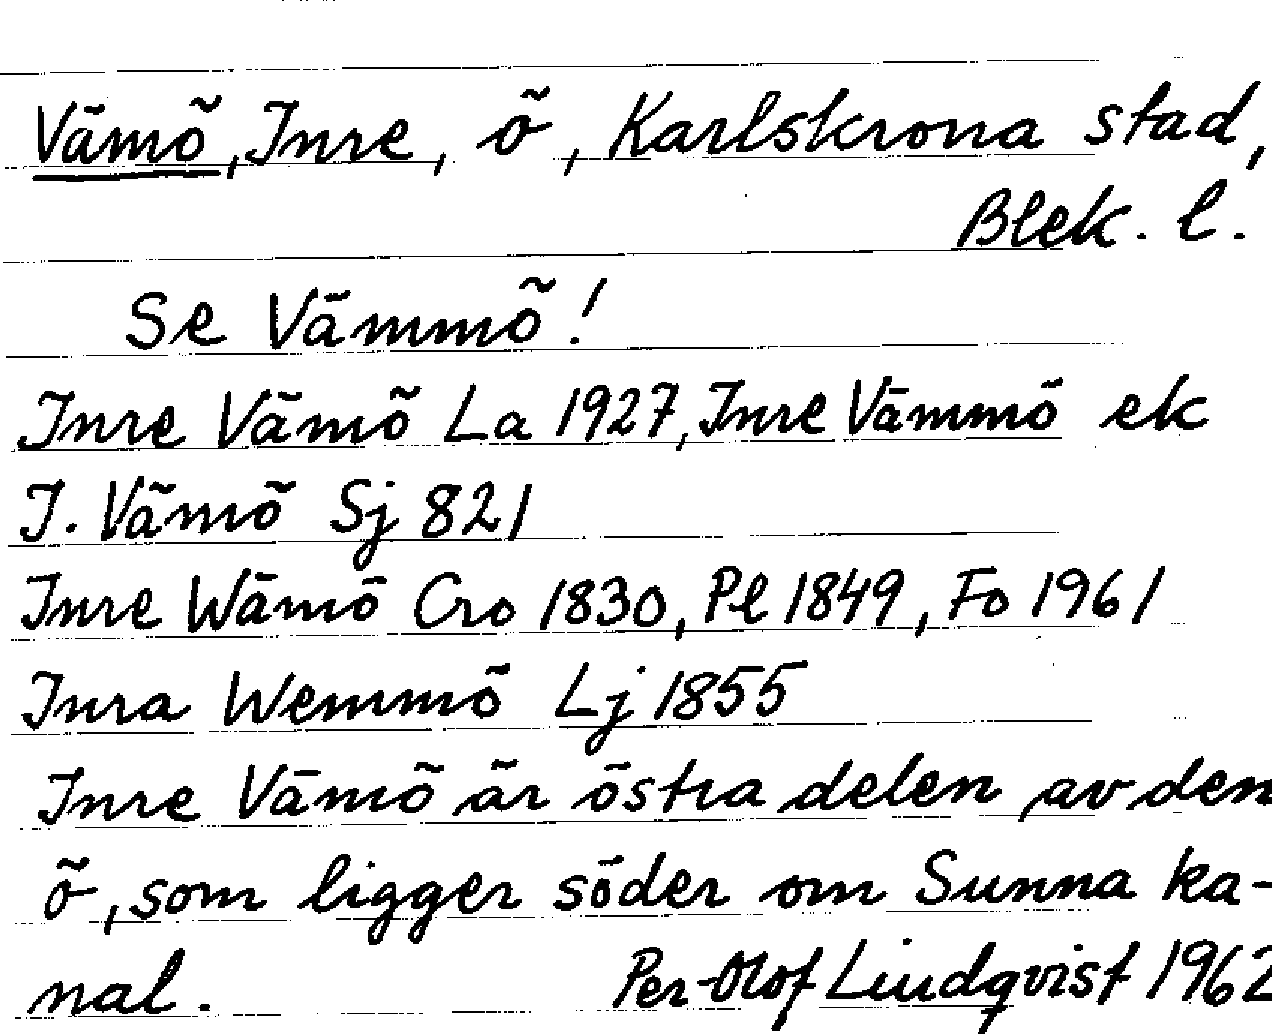 Vämö, Inre, ö, Karlskrona stad,
Blek. l.
Se Vämmö!
Inre Vämö La 1927, Inre Vämmö ek
I. Vämö Sj 821
Inre Wämö Cro 1830, Pl 1849, Fo 1961
Inra Wemmö Lj 1855
Inre Vämö är östra delen av den
ö, som ligger söder om Sunna ka-
nal. Per-Olof Lindqvist 1962